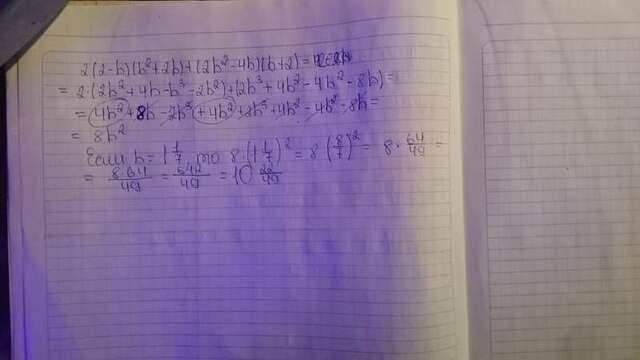 2(2-b)(b²+2b)+(2b²-4b)(b+2)=
=2(2b²+4b-b³-2b²)+(2b³+4b²-4b²-8b)=
=4b²+8b-2b³+4b²+2b³+4b²-4b²-8b=
=8b²
Если b=1 1/7, то 8·(1 1/7)²=8(8/7)²=8·64/49=
=8·64/49=512/49=10 22/49